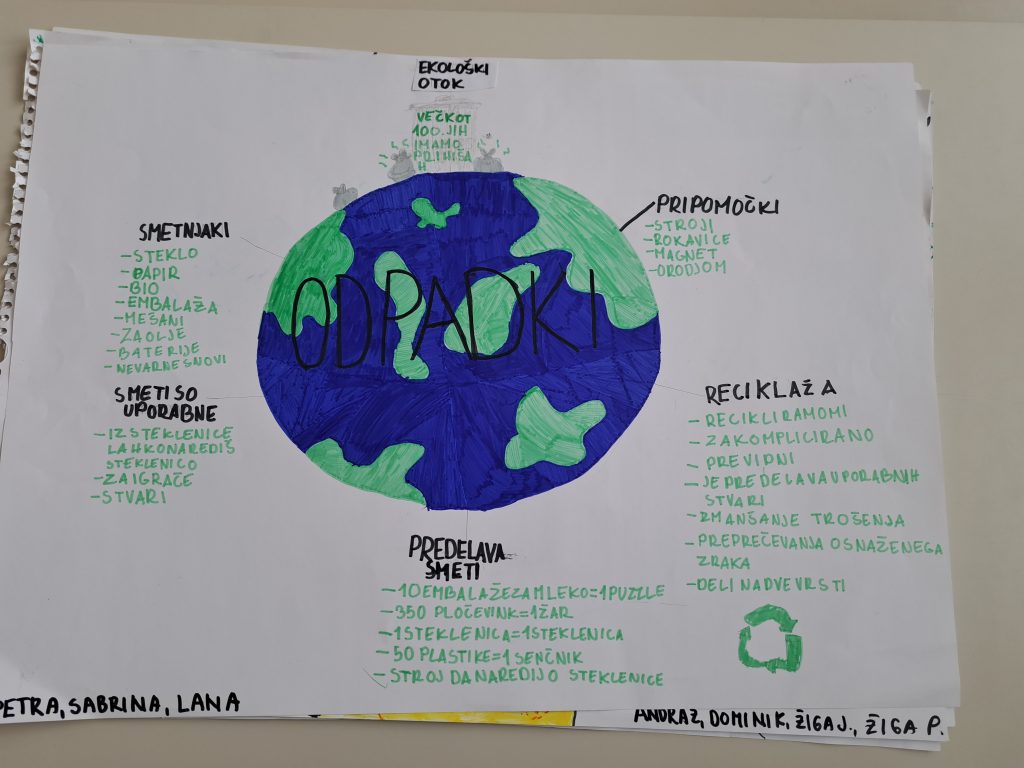 EKOLOŠKI
OTOK
VEČKOT
100.JIH
IMAMO
PRI HIŠA
H
SMETNJAKI
-STEKLO
-PAPIR
-BIO
-EMBALAŽA
-MEŠANI
-ZA OLJE
-BATERIJE
-NEVARNE SNOVI
SMETI SO
UPORABNE
-IZ STEKLENICE
LAHKO NAREDIŠ
STEKLENICO
-ZA IGRAČE
-STVARI
ODPADKI
PRIPOMOČKI
-STROJI
-ROKAVICE
-MAGNET
-ORODJOM
RECIKLAŽA
- RECIKLIRAMO MI
- ZAKOMPLICIRANO
- PREVIDNI
- JE PREDELAVA UPORABNIH
STVARI
- ZMANŠANJE TROŠENJA
- PREPREČEVANJA OSNAŽENEGA
ZRAKA
- DELI NA DVE VRSTI
PREDELAVA
SMETI
-10 EMBALAŽE ZA MLEKO=1 PUZZLE
-350 PLOČEVINK=1 ŽAR
-1 STEKLENICA=1 STEKLENICA
-50 PLASTIKE=1 SENČNIK
-STROJ DA NAREDIJO STEKLENICE
PETRA, SABRINA, LANA
ANDRAŽ, DOMINIK, ŽIGA J., ŽIGA P.